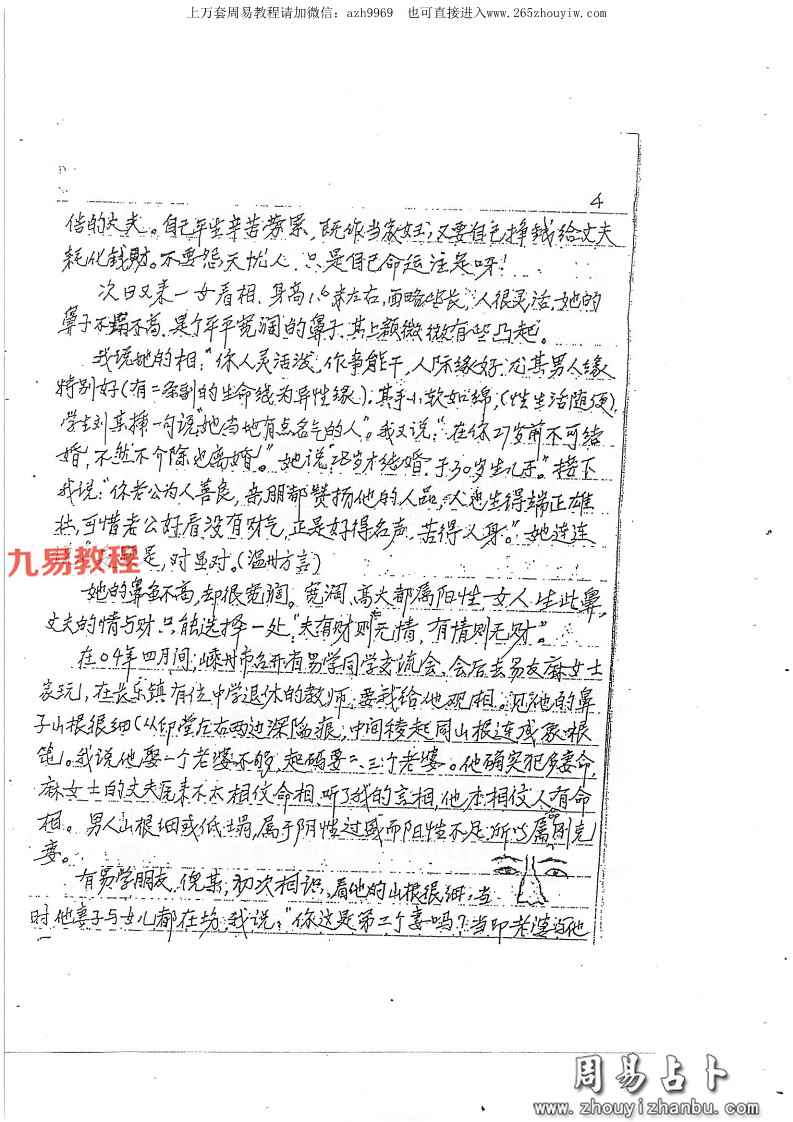 上万套周易教程请加微信：azh9969 也可直接进入www.265zhouyiw.com
4
信的丈夫。自己平生辛苦劳累，既作当家女主，又要自己挣钱给丈夫
耗化钱财。不要怨天忧人，只是自己命运注定呀！
次日又来一女看相，身高1.6米左右，面略些长，人很灵活，她的
鼻子不塌不高，是个平平宽阔的鼻子，其上额微微有些凸起。
我说她的相：“你人灵活泼，作事能干，人际缘好，尤其男人缘
特别好（有二条副的生命线为异性缘），其手小软如绵，（性生活随便），
学生刘某插一句说“她当地有点名气的人”。我又说：“在你27岁前不可结
婚，不然不个除也离婚。”她说“28岁才结婚，于30岁生儿子。”接下
我说：“你老公为人善良，亲朋都赞扬他的人品，人也生得端正雄
壮，可惜老公好看没有财气，正是好得名声，苦得义身。”她连连
是，对显对。（温州方言）
九易教程
她的鼻虽不高，却很宽阔。宽阔、高大都属阳性，女人生此鼻，
丈夫的情与财只能选择一处，“夫有财则无情，有情则无财”。
在04年四月间，嵊州市召开有易学同学交流会，会后去易友麻女士
家玩，在长乐镇有位中学退休的教师，要我给他观相。见他的鼻
子山根很细（从印堂左右两边深陷痕，中间稜起同山根连成象根
笔）。我说他娶一个老婆不够，起码要二、三个老婆。他确实犯多妻命，
麻女士的丈夫原来不太相信命相，听了我的言相，他才相信人有命
相。男人山根细或低塌，属于阴性过盛而阳性不足，所以属命刑克
妻。
有易学朋友倪某，初次相识，看他的山根很细，当
时他妻子与女儿都在场，我说：“你这是第二个妻吗？当即老婆与他
周易占卜
www.zhouyizhanbu.com